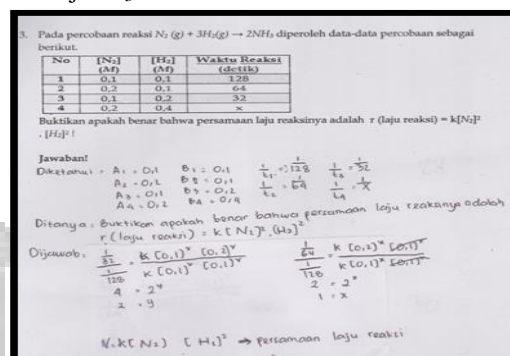 3. Pada percobaan reaksi N₂ (g) + 3H₂(g) → 2NH₃ diperoleh data-data percobaan sebagai
berikut.
No [N₂] (M) [H₂] (M) Waktu Reaksi (detik)
1 0,1 0,1 128
2 0,2 0,1 64
3 0,1 0,2 32
4 0,2 0,4 x
Buktikan apakah benar bahwa persamaan laju reaksinya adalah r (laju reaksi) = k[N₂]²
. [H₂]² !
Jawaban!
Diketahui : A₁ = 0,1 B₁ = 0,1 1/t₁ = 1/128 1/t₃ = 1/32
A₂ = 0,2 B₂ = 0,1 1/t₂ = 1/64 1/t₄ = 1/x
A₃ = 0,1 B₃ = 0,2
A₄ = 0,2 B₄ = 0,4
Ditanya : Buktikan apakah benar bahwa persamaan laju reaksinya adalah
r (laju reaksi) = k [N₂]². [H₂]²
Dijawab : 1/32 / 1/128 = k [0,1]ˣ [0,2]ʸ / k [0,1]ˣ [0,1]ʸ 1/64 / 1/128 = k [0,2]ˣ [0,1]ʸ / k [0,1]ˣ [0,1]ʸ
4 = 2ʸ 2 = 2ˣ
2 = y 1 = x
V = k [N₂] [H₂]² → persamaan laju reaksi